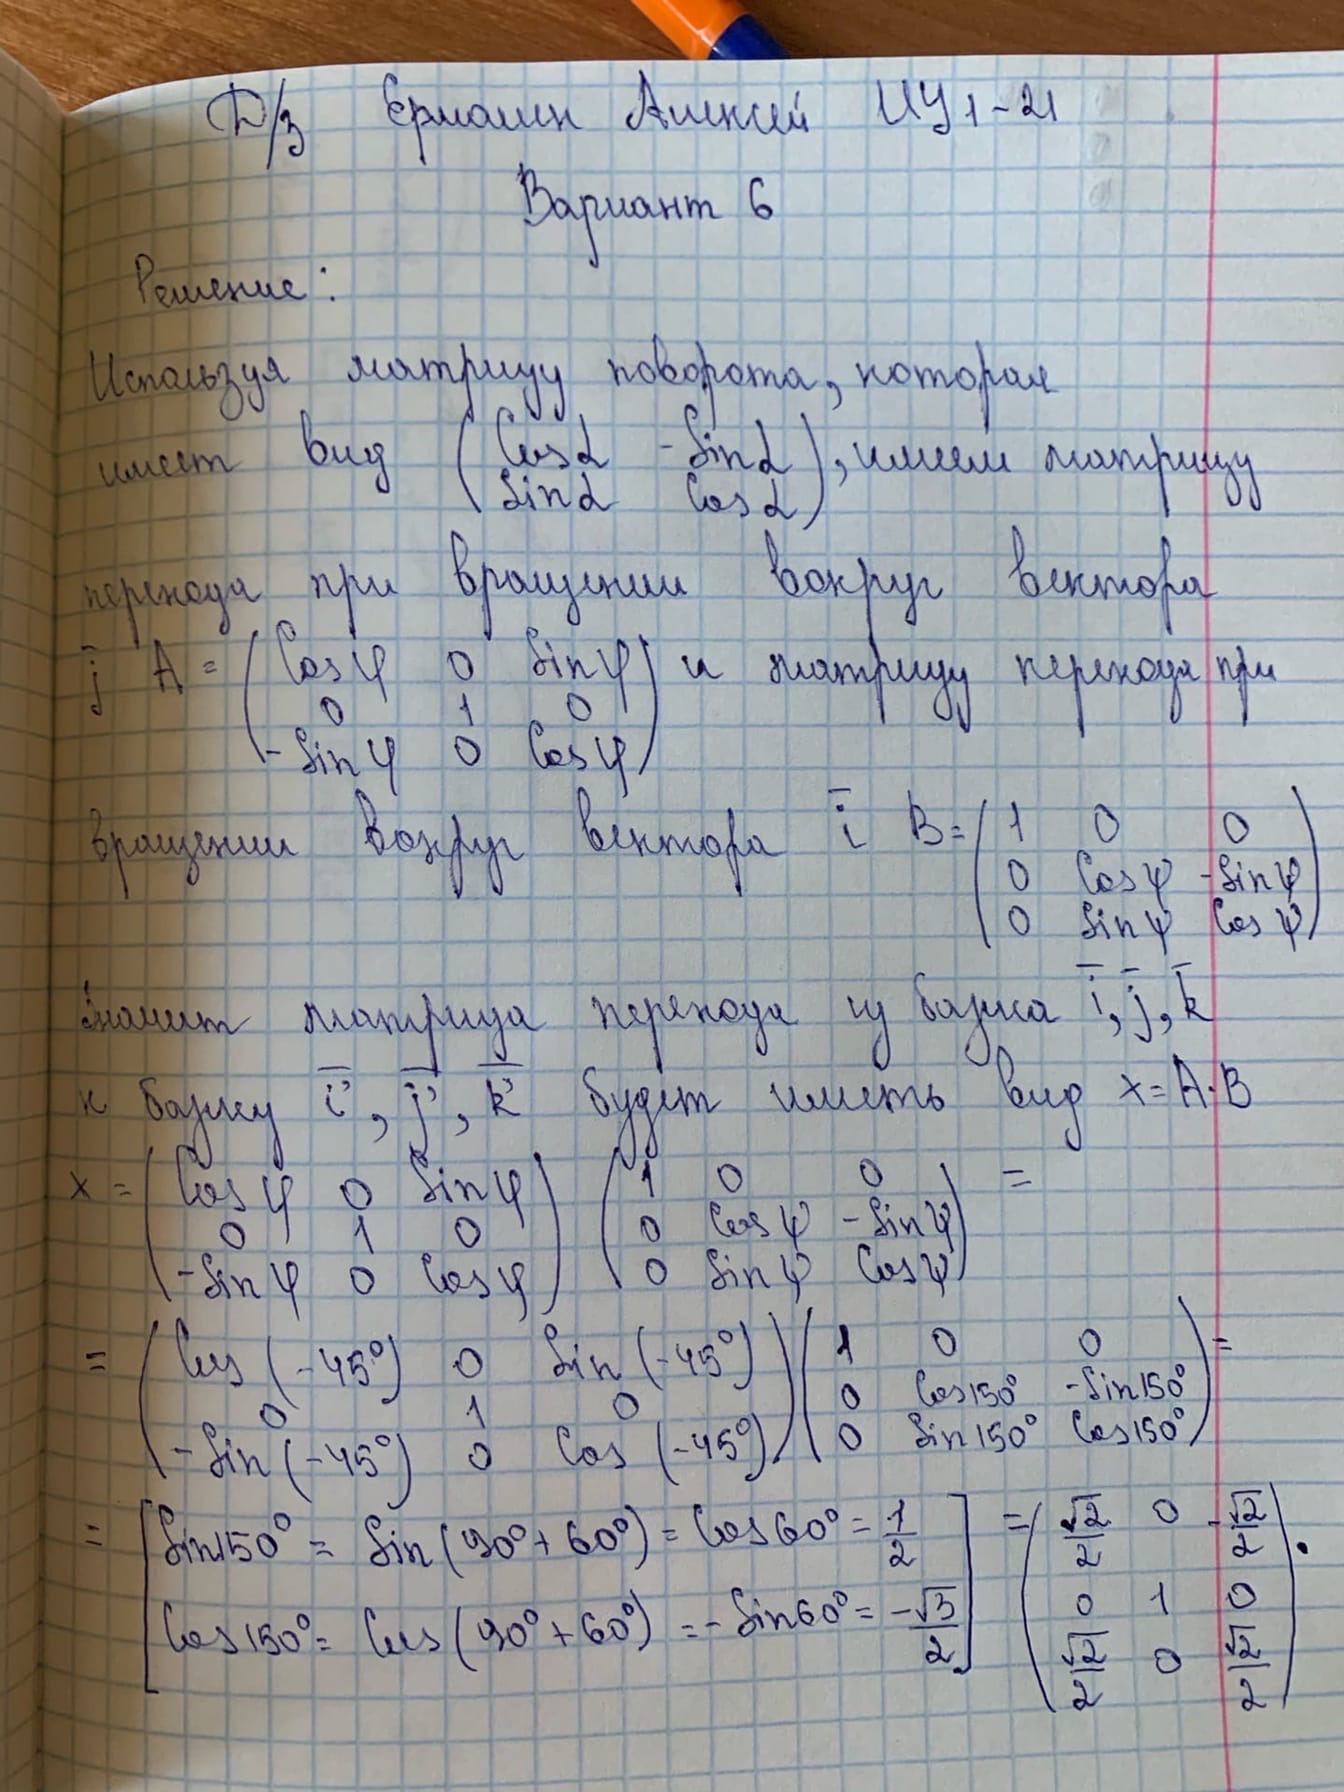 Д/З Ермолин Алексей ИУ1-21
Вариант 6
Решение:
Используя матрицу поворота, которая
имеет вид ( cosα -sinα ; sinα cosα ), имеем матрицу
перехода при вращении вокруг вектора
j̄ A = ( cosφ 0 sinφ ; 0 1 0 ; -sinφ 0 cosφ ) и матрицу перехода при
вращении вокруг вектора ī B = ( 1 0 0 ; 0 cosψ -sinψ ; 0 sinψ cosψ )
Значит матрица перехода из базиса ī, j̄, k̄
к базису ī', j̄', k̄' будет иметь вид x = A·B
x = ( cosφ 0 sinφ ; 0 1 0 ; -sinφ 0 cosφ ) ( 1 0 0 ; 0 cosψ -sinψ ; 0 sinψ cosψ ) =
= ( cos(-45°) 0 sin(-45°) ; 0 1 0 ; -sin(-45°) 0 cos(-45°) ) ( 1 0 0 ; 0 cos150° -sin150° ; 0 sin150° cos150° ) =
= [ sin150° = sin(90°+60°) = cos60° = 1/2 ; cos150° = cos(90°+60°) = -sin60° = -√3/2 ] = ( √2/2 0 -√2/2 ; 0 1 0 ; √2/2 0 √2/2 ) ·